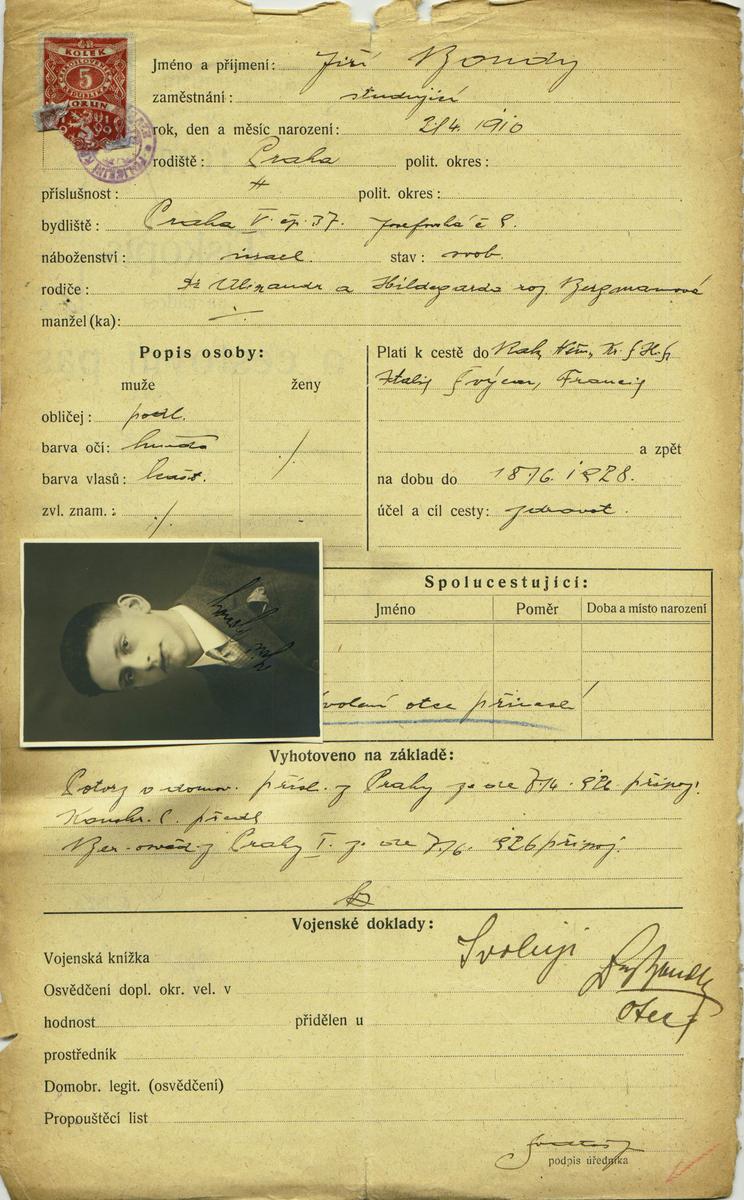 KOLEK
5
KORUN
Jméno a příjmení: Jiří Bondy
zaměstnání: studující
rok, den a měsíc narození: 2/4. 1910
rodiště: Praha polit. okres:
příslušnost: polit. okres:
bydliště: Praha V. čp. 37. Josefovská č 9.
náboženství: israel. stav: svob.
rodiče: a Hildegarda roz. Bergmanová
manžel (ka): ÷
Popis osoby:
muže ženy
obličej: podl.
barva očí: hnědá
barva vlasů: kašt.
zvl. znam.: ./.
Platí k cestě do Rak, Něm,
Italij Švýcar, Francij
a zpět
na dobu do 18/6. 1928.
účel a cíl cesty: zdravot.
Spolucestující:
Jméno Poměr Doba a místo narození
volení otce přinese
Vyhotoveno na základě:
o domov. přísl. z Prahy ze dne 7/4. 926 připoj.
Prahy I. ze dne 7/6. 926 připoj.
Vojenské doklady:
Vojenská knížka
Svoluji
Osvědčení dopl. okr. vel. v
hodnost přidělen u
otec
prostředník
Domobr. legit. (osvědčení)
Propouštěcí list
podpis úředníka